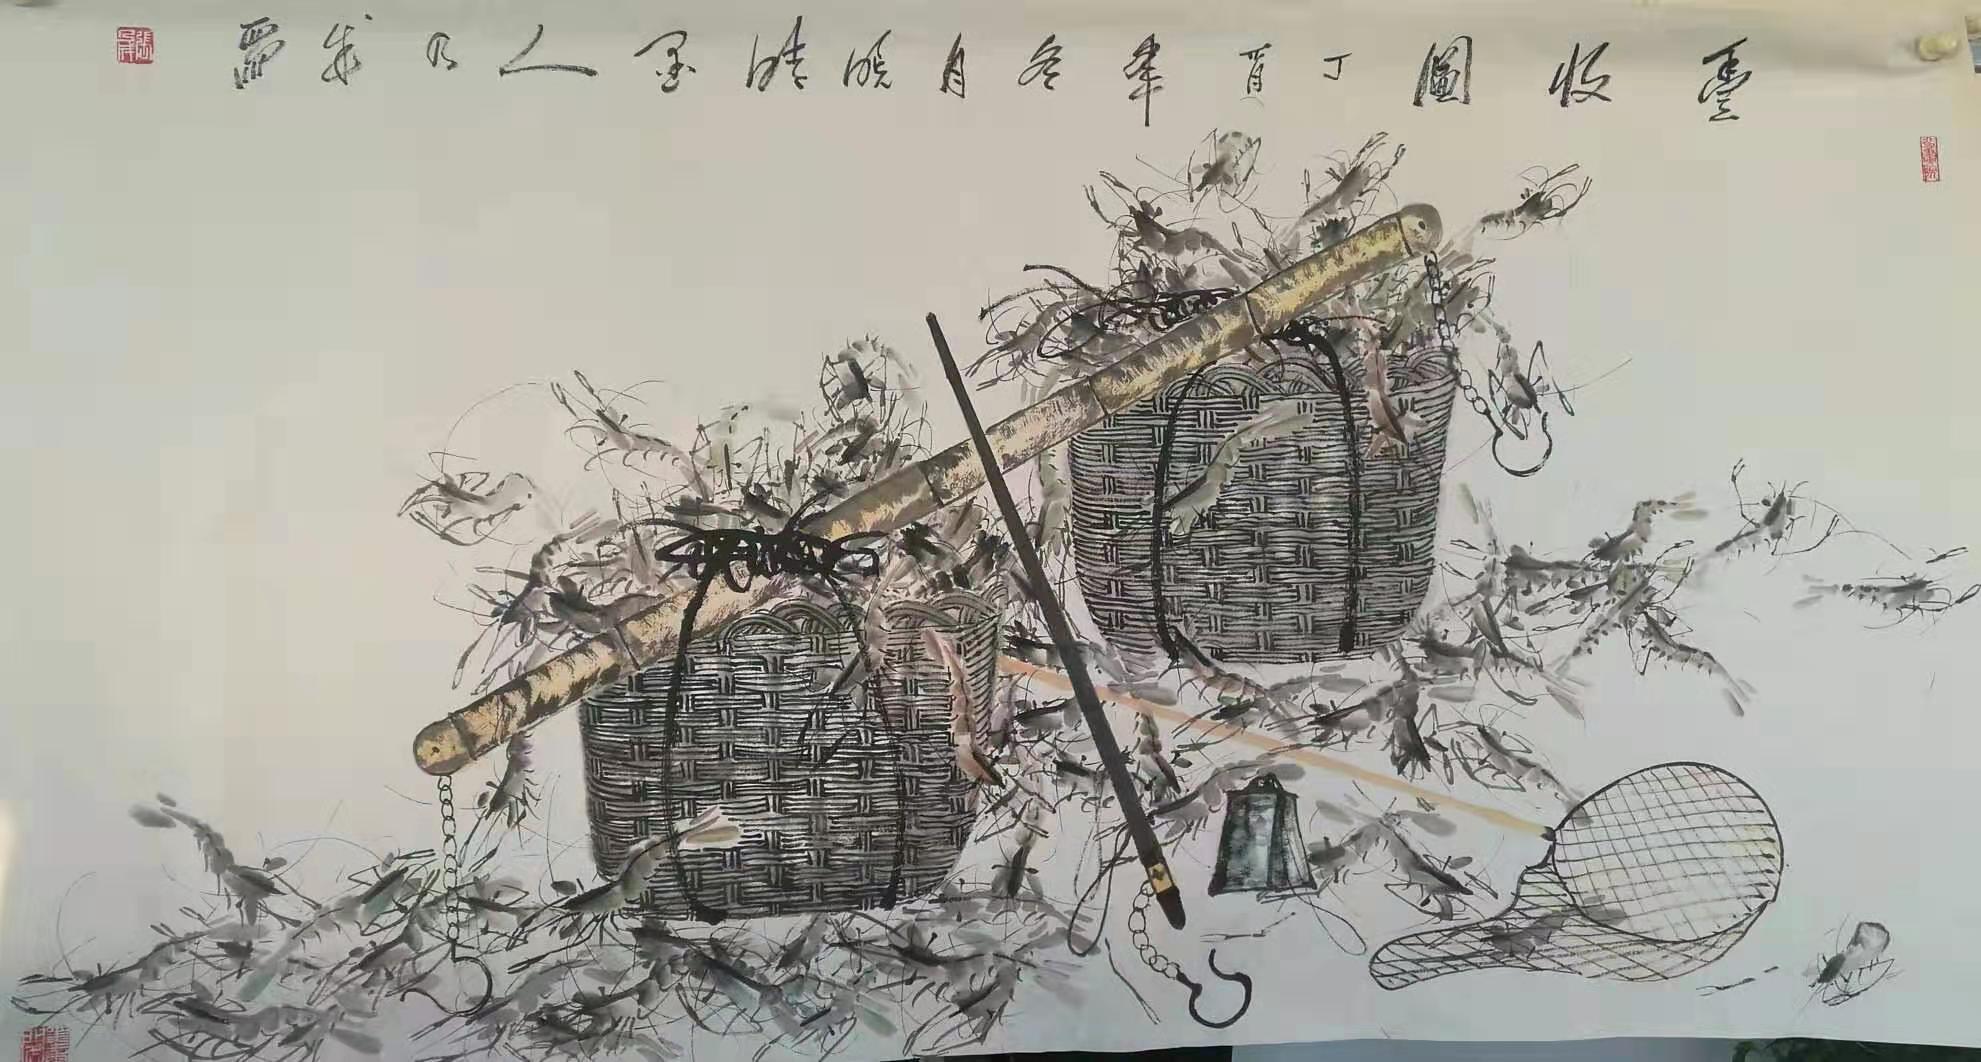 豐收圖丁酉年冬月晓晴墨人乃成畫